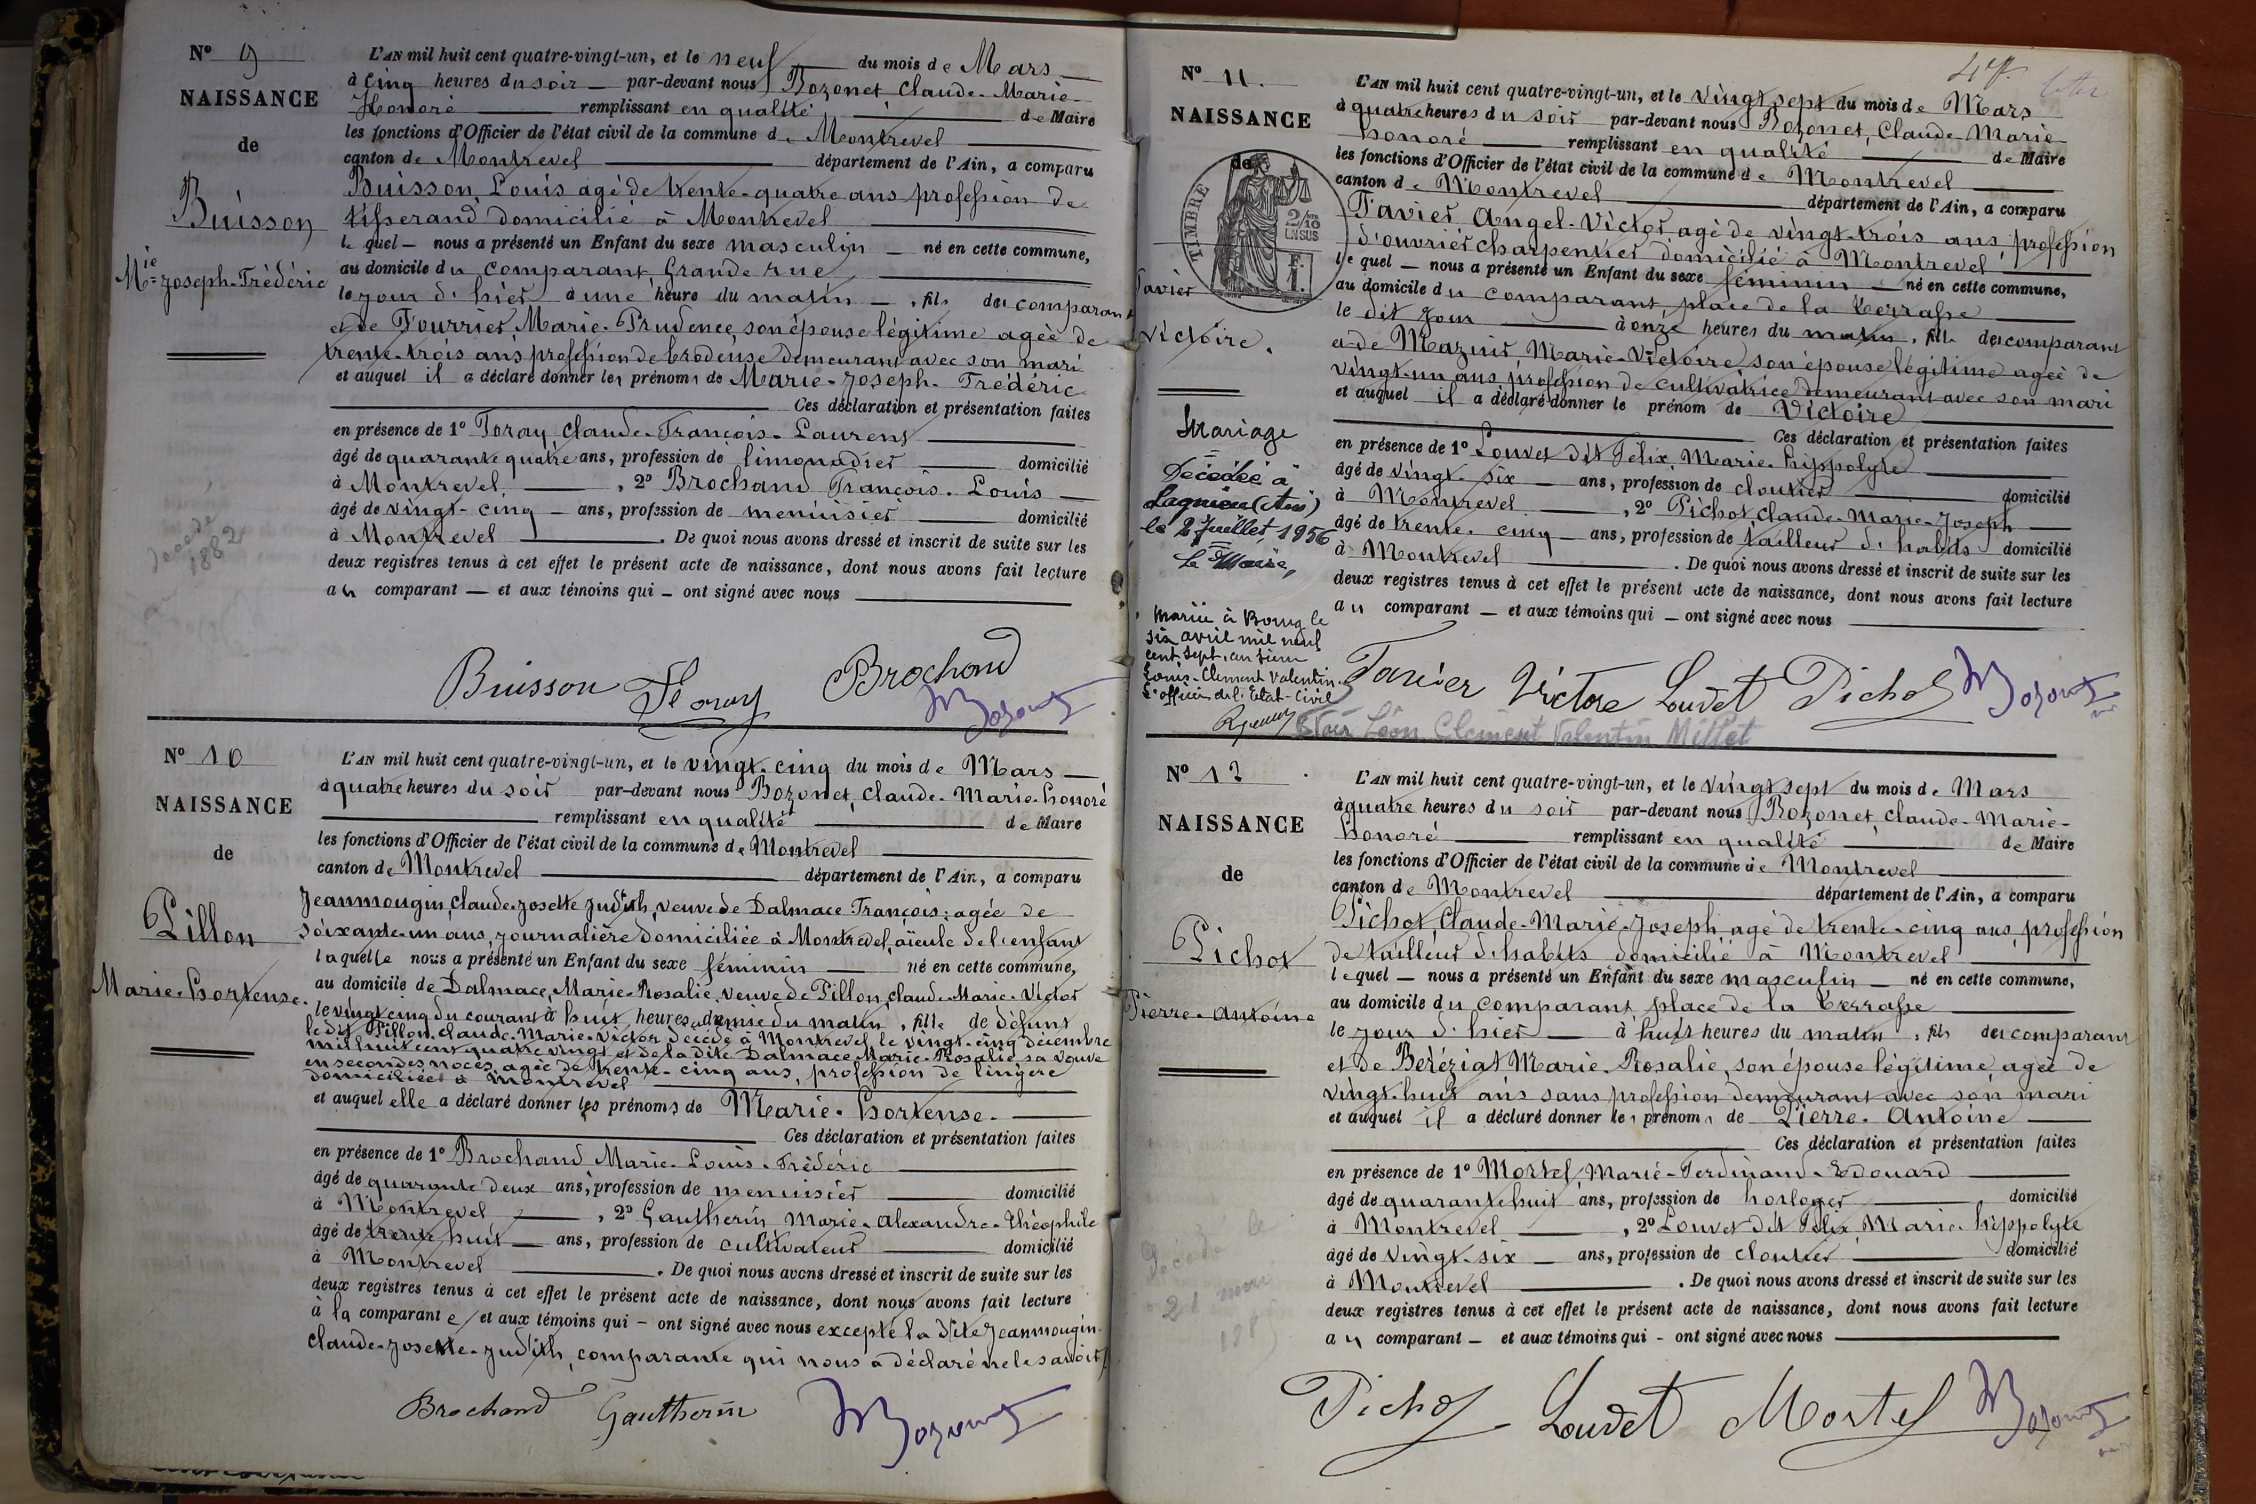 N° 9
NAISSANCE
de
Buisson
Mie Joseph-Frédéric
L'AN mil huit cent quatre-vingt-un, et le neuf du mois de Mars
à cinq heures du soir par-devant nous Bozonet Claude-Marie-
Honoré remplissant en qualité de Maire
les fonctions d'Officier de l'état civil de la commune de Montrevel
canton de Montrevel département de l'Ain, a comparu
Buisson Louis agé de trente-quatre ans profession de
tisserand domicilié à Montrevel
le quel nous a présenté un Enfant du sexe masculin né en cette commune,
au domicile du comparant Grande rue
le jour d'hier à une heure du matin, fils du comparant
et de Fourrier Marie-Prudence, son épouse légitime agée de
trente-trois ans profession de brodeuse demeurant avec son mari
et auquel il a déclaré donner les prénoms de Marie-Joseph-Frédéric
Ces déclaration et présentation faites
en présence de 1° Foray Claude-François-Laurent
âgé de quarante quatre ans, profession de limonadier domicilié
à Montrevel, 2° Brochand François-Louis
âgé de vingt-cinq ans, profession de menuisier domicilié
à Montrevel. De quoi nous avons dressé et inscrit de suite sur les
deux registres tenus à cet effet le présent acte de naissance, dont nous avons fait lecture
au comparant et aux témoins qui ont signé avec nous
décédé
1882
Buisson Foray Brochand Bozonet
N° 10
NAISSANCE
de
Pillon
Marie-hortense.
L'AN mil huit cent quatre-vingt-un, et le vingt-cinq du mois de Mars
à quatre heures du soir par-devant nous Bozonet, Claude-Marie-honoré
remplissant en qualité de Maire
les fonctions d'Officier de l'état civil de la commune de Montrevel
canton de Montrevel département de l'Ain, a comparu
Jeanmougin, Claude-Josette Judith, veuve de Dalmace François; agée de
soixante-un ans, journalière domiciliée à Montrevel, aïeule de l'enfant
laquelle nous a présenté un Enfant du sexe féminin né en cette commune,
au domicile de Dalmace, Marie-Rosalie, veuve de Pillon, Claude-Marie-Victor
le vingt cinq du courant à huit heures et demie du matin, fille de défunt
le dit Pillon, Claude-Marie-Victor décédé à Montrevel le vingt-cinq décembre
mil huit cent quatre vingt et de la dite Dalmace Marie-Rosalie sa veuve
en secondes noces, agée de trente-cinq ans, profession de lingère
domiciliée à Montrevel
et auquel elle a déclaré donner les prénoms de Marie-hortense.
Ces déclaration et présentation faites
en présence de 1° Brochand Marie-Louis-Frédéric
âgé de quarante deux ans, profession de menuisier domicilié
à Montrevel, 2° Gautherin Marie-Alexandre-Théophile
âgé de trente huit ans, profession de cultivateur domicilié
à Montrevel. De quoi nous avons dressé et inscrit de suite sur les
deux registres tenus à cet effet le présent acte de naissance, dont nous avons fait lecture
à la comparante et aux témoins qui ont signé avec nous excepté la dite Jeanmougin-
Claude-Josette-Judith, comparante qui nous a déclaré ne le savoir
Brochand Gautherin Bozonet
N° 11.
NAISSANCE
de
TIMBRE
2/10es EN SUS
Favier
Victoire.
Mariage
Décédée à
Lagnieu (Ain)
le 2 Juillet 1956
Le Maire,
Mariée à Bourg le
six avril mil neuf
cent sept, au sieur
Louis-Clement Valentin
L'officier de l'Etat-Civil
L'AN mil huit cent quatre-vingt-un, et le vingt sept du mois de Mars
à quatre heures du soir par-devant nous Bozonet, Claude-Marie
honoré remplissant en qualité de Maire
les fonctions d'Officier de l'état civil de la commune de Montrevel
canton de Montrevel département de l'Ain, a comparu
Favier Angel-Victor agé de vingt-trois ans, profession
d'ouvrier charpentier domicilié à Montrevel
le quel nous a présenté un Enfant du sexe féminin né en cette commune,
au domicile du comparant place de la terrasse
le dit jour à onze heures du matin, fille du comparant
et de Mazuir Marie-Victoire son épouse légitime agée de
vingt-un ans profession de cultivatrice demeurant avec son mari
et auquel il a déclaré donner le prénom de Victoire
Ces déclaration et présentation faites
en présence de 1° Louvet dit Félix, Marie-hippolyte
âgé de vingt-six ans, profession de cloutier domicilié
à Montrevel, 2° Pichot, Claude-Marie-Joseph
âgé de trente-cinq ans, profession de tailleur d'habits domicilié
à Montrevel. De quoi nous avons dressé et inscrit de suite sur les
deux registres tenus à cet effet le présent acte de naissance, dont nous avons fait lecture
au comparant et aux témoins qui ont signé avec nous
Favier Victore Louvet Pichot Bozonet
Léon Clément Valentin Millet
N° 12
NAISSANCE
de
Pichot
Pierre-Antoine
L'AN mil huit cent quatre-vingt-un, et le vingt sept du mois de Mars
à quatre heures du soir par-devant nous Bozonet, Claude-Marie-
honoré remplissant en qualité de Maire
les fonctions d'Officier de l'état civil de la commune de Montrevel
canton de Montrevel département de l'Ain, a comparu
Pichot, Claude-Marie-Joseph agé de trente-cinq ans, profession
de tailleur d'habits domicilié à Montrevel
lequel nous a présenté un Enfant du sexe masculin né en cette commune,
au domicile du comparant, place de la terrasse
le jour d'hier à huit heures du matin, fils du comparant
et de Béréziat Marie-Rosalie, son épouse légitime, agée de
vingt-huit ans sans profession demeurant avec son mari
et auquel il a déclaré donner les prénoms de Pierre-Antoine
Ces déclaration et présentation faites
en présence de 1° Mortel, Marie-Ferdinand-Edouard
âgé de quarante huit ans, profession de horloger domicilié
à Montrevel, 2° Louvet dit Félix, Marie-hippolyte
âgé de vingt-six ans, profession de cloutier domicilié
à Montrevel. De quoi nous avons dressé et inscrit de suite sur les
deux registres tenus à cet effet le présent acte de naissance, dont nous avons fait lecture
au comparant et aux témoins qui ont signé avec nous
Pichot Louvet Mortel Bozonet